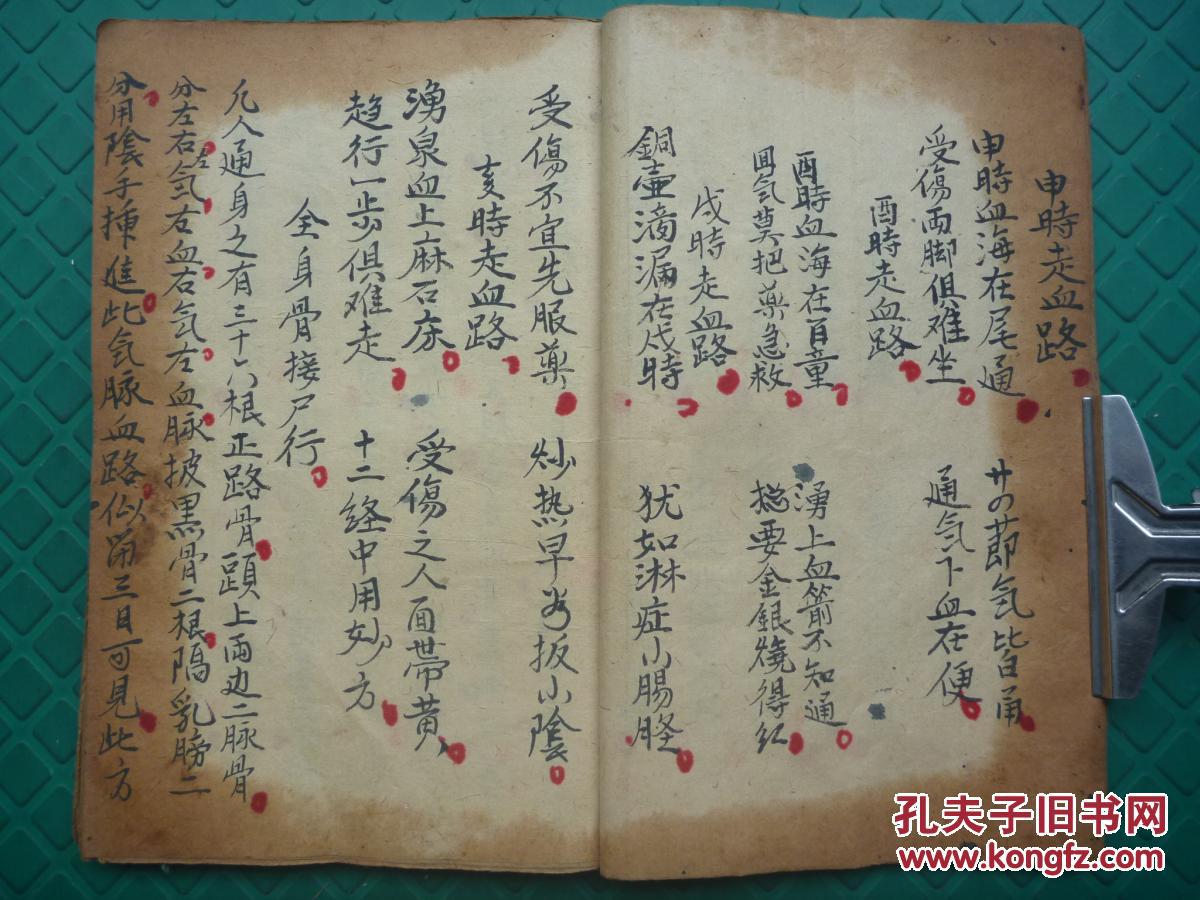 申時走血路
申時血海在尾通 廿四節氣皆甬
受傷両脚俱难坐 通气下血在便
酉時走血路
酉時血海在百童 湧上血箭不知通
回气莫把藥急救 揔要金銀燒得红
戌時走血路
銅壷滴漏在戌時 犹如淋症小腸胫
受傷不宜先服藥 炒热早 扳小陰
亥時走血路
湧泉血上麻石床 受傷之人面帶黄
趋行一步俱难走 十二经中用妙方
全身骨接尸行
凡人通身之有三十六根正路骨 頭上両边二脉骨
分左右左氣右血右氣左血脉披黑骨二根隔乳膀二
分用陰手捶進此气脉血路 三日可見此方
孔夫子旧书网
www.kongfz.com